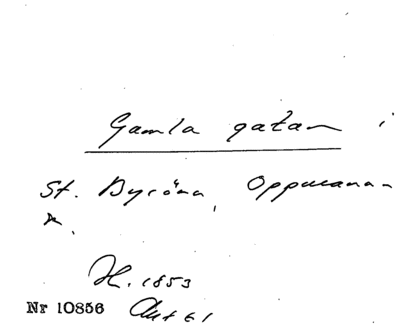 Gamla gatan i
St. Byröna, Oppmanna
H. 1853
Nr 10856